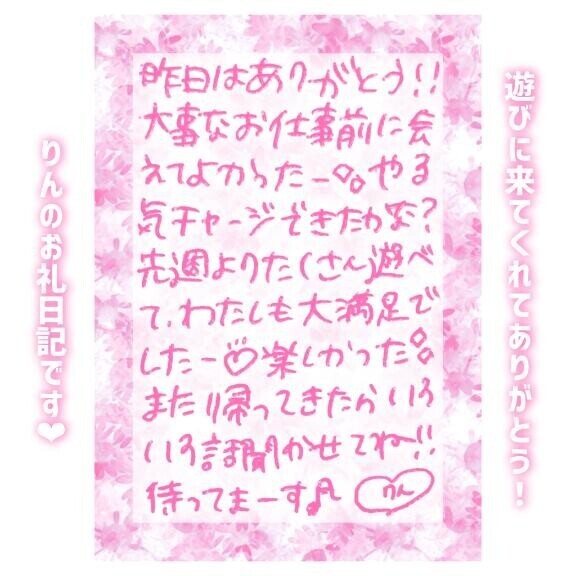 遊びに来てくれてありがとう！
昨日はありがとう!!
大事なお仕事前に会
えてよかったー。。やる
気チャージできたかな?
先週よりたくさん遊べ
て、わたしも大満足で
したー♡楽しかった。。
また帰ってきたらいろ
いろ話聞かせてねー!!
待ってまーす♪ りん
りんのお礼日記です❤